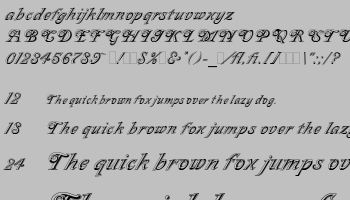 abcdefghijklmnopqrstuvwxyz
ABCDEFGHIJKLMNOPQRSTU
0123456789
12 The quick brown fox jumps over the lazy dog.
18 The quick brown fox jumps over the lazy
24 The quick brown fox jumps ov